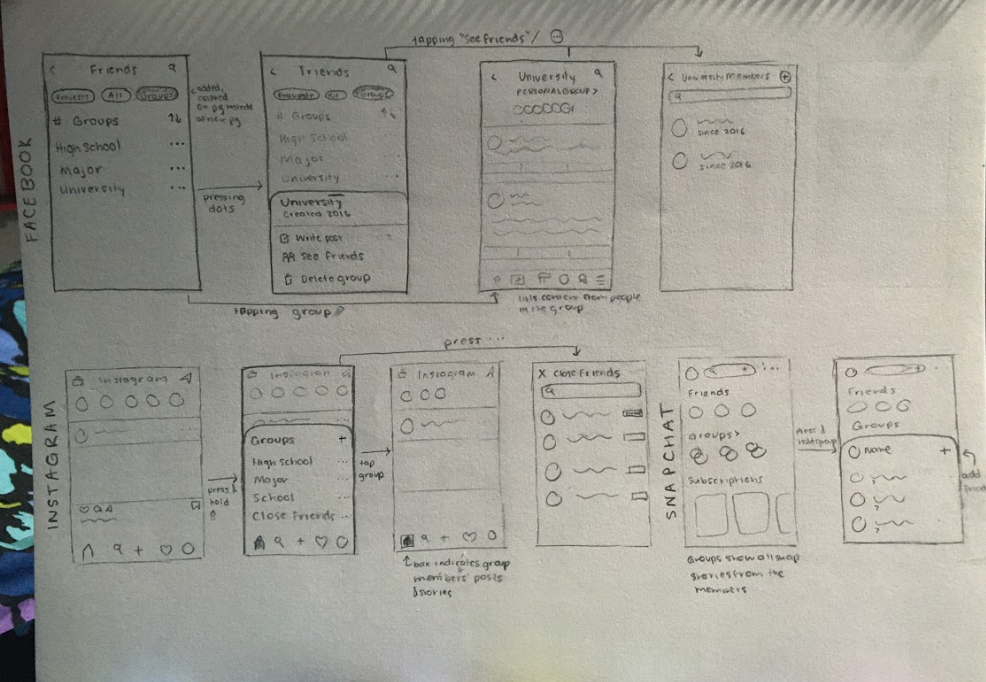 FACEBOOK
tapping "see friends" /
Friends
All
Groups
# Groups
High School
Major
University
added,
on pg instead
of new pg
pressing
dots
Friends
All
Groups
# Groups
High School
Major
University
University
Created 2016
Write post
See Friends
Delete group
University
PERSONAL GROUP >
University Members
since 2016
since 2016
tapping group
this content from people
in the group
INSTAGRAM
Instagram
press &
hold
Instagram
Groups +
High School
Major
School
Close Friends
press ...
tap
group
Instagram
box indicates group
members' posts
& stories
X Close Friends
SNAPCHAT
Friends
Groups >
Subscriptions
Groups show all snap
stories from the
members
press &
hold group
Friends
Groups
Name +
add